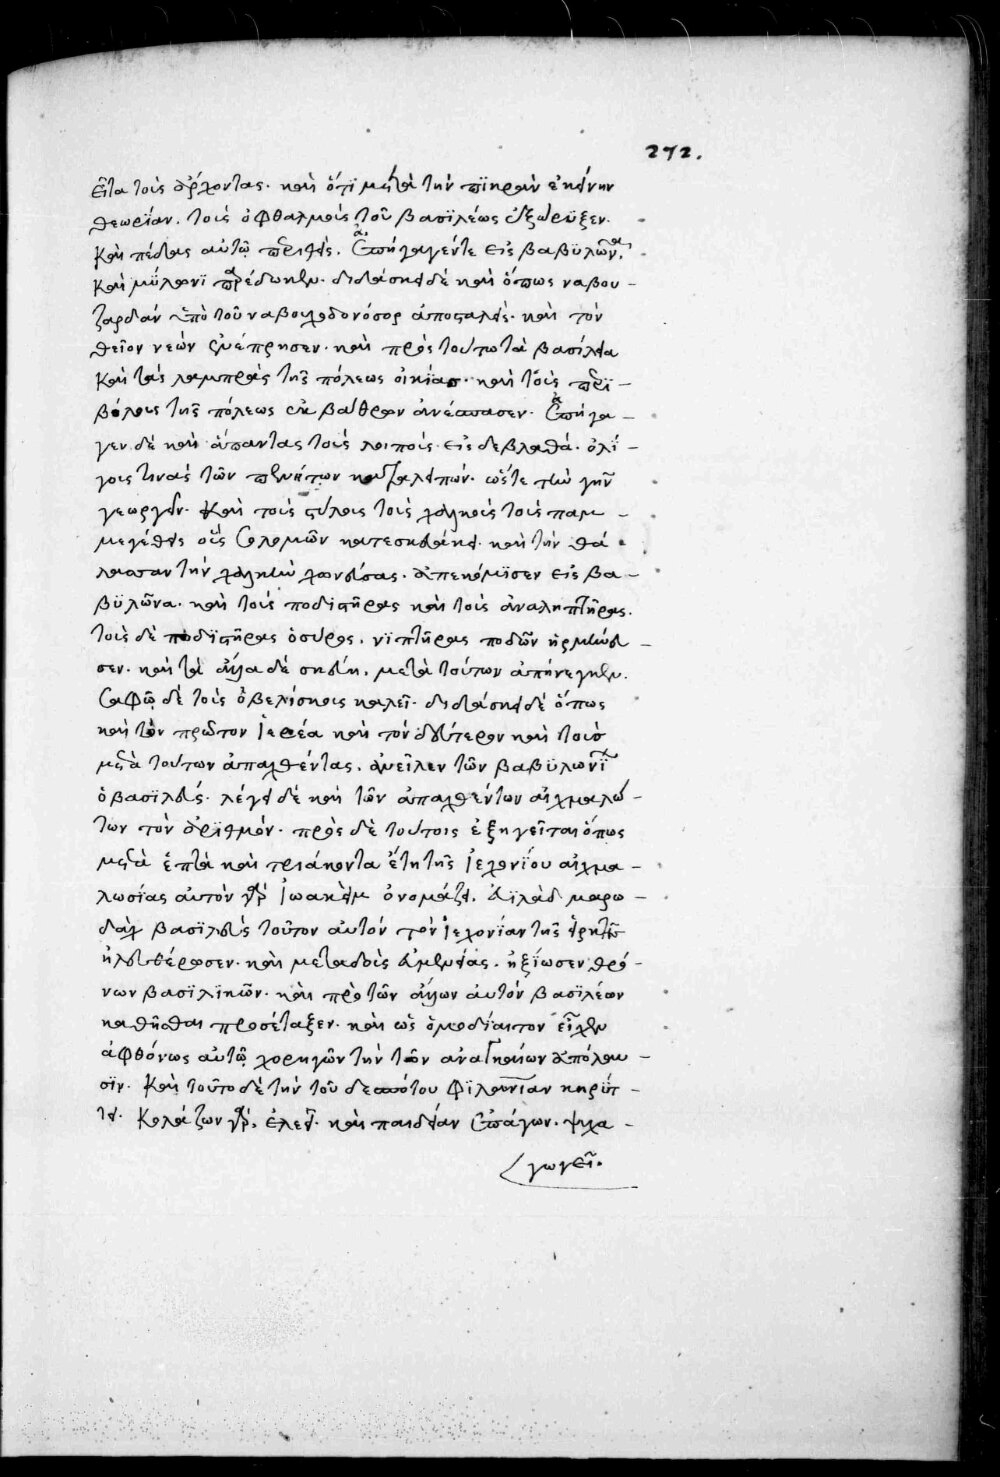 272.
εἶτα τοὺς ἄρχοντας. καὶ ὅτι μετὰ τὴν πικρὰν ἐκείνην
θεωρίαν. τοὺς ὀφθαλμοὺς τοῦ βασιλέως ἐξώρυξεν.
καὶ πέδας αὐτῷ περιθεὶς. ἀπήγαγέ τε εἰς βαβυλῶνα.
καὶ μύλωνι παρέδωκεν. διδάσκει δὲ καὶ ὅπως ναβου -
ζαρδὰν ὑπὸ τοῦ ναβουχοδονόσορ ἀποσταλεὶς. καὶ τὸν
θεῖον νεὼν ἐνέπρησεν. καὶ πρὸς τούτω τὰ βασίλεια
καὶ τὰς λαμπρὰς τῆς πόλεως οἰκίας. καὶ τοὺς περι -
βόλους τῆς πόλεως ἐκ βάθρων ἀνέσπασεν. ἀπήγα -
γεν δὲ καὶ ἅπαντας τοὺς λοιποὺς εἰς δεβλαθά. ὀλί -
γους τινὰς τῶν πενήτων καταλιπών. ὥστε τὴν γῆν
γεωργεῖν. καὶ τοὺς στύλους τοὺς χαλκοὺς τοὺς παμ -
μεγέθεις οὓς σολομῶν κατεσκεύασε. καὶ τὴν θά -
λασσαν τὴν χαλκῆν χωνεύσας. ἀπεκόμισεν εἰς βα -
βυλῶνα. καὶ τοὺς ποδιστῆρας καὶ τοὺς ἀναλημπτῆρας.
τοὺς δὲ ποδιστῆρας ὁ σύρος. νιπτῆρας ποδῶν ἡρμήνευ -
σεν. καὶ τὰ ἄλλα δὲ σκεύη. μετὰ τούτων ἀπήνεγκεν.
σαφῶ δὲ τοὺς ὀβελίσκους καλεῖ. διδάσκει δὲ ὅπως
καὶ τὸν πρῶτον ἱερέα καὶ τὸν δεύτερον καὶ τοὺς
μετὰ τούτων ἀπαχθέντας. ἀνεῖλεν τῶν βαβυλωνίων
ὁ βασιλεύς. λέγει δὲ καὶ τῶν ἀπαχθέντων αἰχμαλώ -
των τὸν ἀριθμόν. πρὸς δὲ τούτοις ἐξηγεῖται ὅπως
μετὰ ἑπτὰ καὶ τριάκοντα ἔτη τῆς ἰεχονίου αἰχμα -
λωσίας αὐτὸν γὰρ ἰωακεὶμ ὀνομάζει. αἰλὰδ μαρω -
δὰχ βασιλεὺς τοῦτον αὐτὸν τὸν ἰεχονίαν τῆς εἱρκτῆς
ἠλευθέρωσεν. καὶ μεταδοὺς εὐμενείας. ἠξίωσεν θρό -
νων βασιλικῶν. καὶ πρὸ τῶν ἄλλων αὐτὸν βασιλέων
καθῆσθαι προσέταξεν. καὶ ὡς ὁμοδίαιτον εἶχεν
ἀφθόνως αὐτῷ χορηγῶν τὴν τῶν ἀναγκαίων ἀπόλαυ -
σιν. καὶ τοῦτο δὲ τὴν τοῦ δεσπότου φιλανθρωπίαν κηρύτ -
τει. κολάζων γὰρ. ἐλεεῖ. καὶ παιδείαν ἐπάγων. ψυχα -
γωγεῖ.